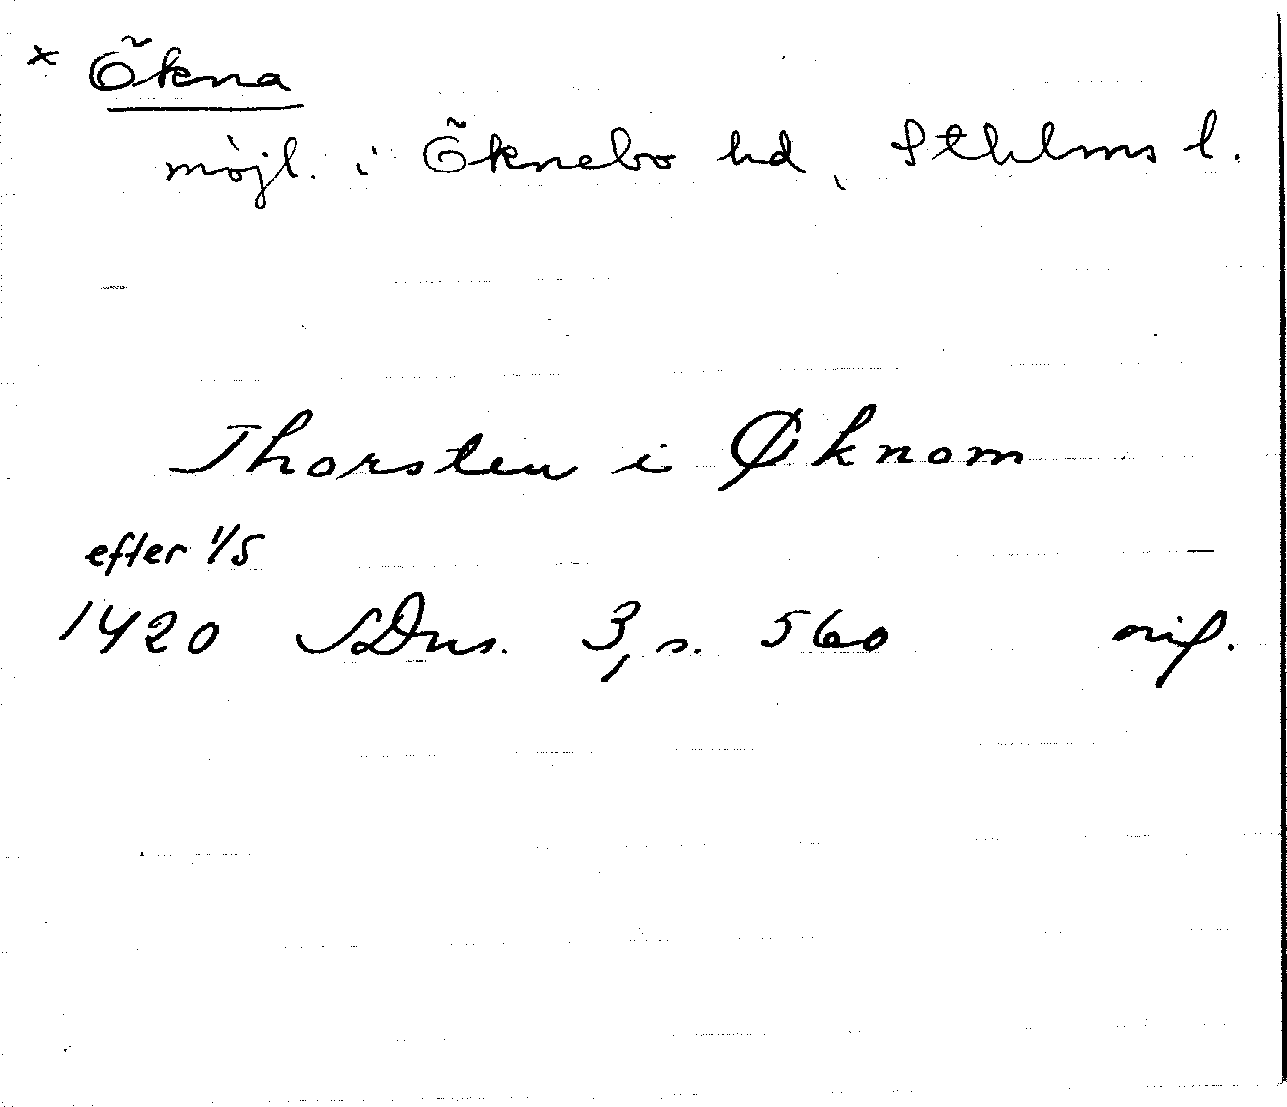 × Ökna
möjl. i Öknebo hd, Sthlms l.
Thorsten i Øknom
efter 1/5
1420 SDns. 3, s. 560 orif.